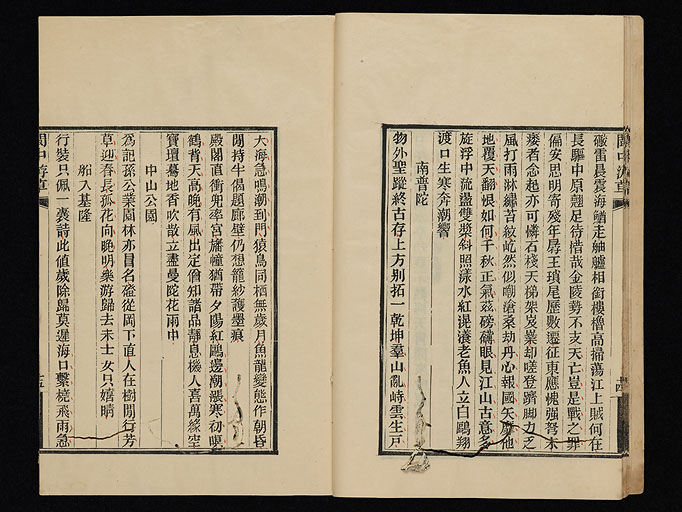 閩中游草
礮雷晨震海鰌走舳艫相銜樓櫓高掃蕩江上賊何在
長驅中原翹足待惜哉金陵勢不支天亡豈是戰之罪
偏安思明寄殘年辱王瑣尾歷數遷征東應愧強弩末
瘘者念起亦可憐石棧天梯架岌嶪却嗟登躋脚力乏
風打雨淋繡苔紋屹然似嘲滄桑劫丹心報國矢靡他
地覆天翻恨如何千秋正氣茲磅礴眼見江山古意多
旌浮中流盪雙槳斜照漾水紅滉瀁老魚人立白鷗翔
渡口生寒夯潮響
南普陀
物外聖蹤終古存上方别拓一乾坤羣山亂峙雲生戸
十四
大海急鳴潮到門猿鳥同栖無歲月魚龍變態作朝昏
閒持牛偈題廊壁仍想籠紗護墨痕
殿閣直衝兜率宮旛幢猶帶夕陽紅鷗邊潮漲寒初
鶴背天高晚有風出定僧知諸品靜息機人喜萬緣空
寶壇驀地香吹散立盡曼陀花雨中
中山公園
為記孫公業園林亦冒名盤從岡下直人在樹間行芳
草迎春長孤花向晚明樂游歸去未士女只嬉晴
船入基隆
行裝只佩一囊詩此値歲除歸莫遲海口繫橈飛雨急
閩中游草
十五